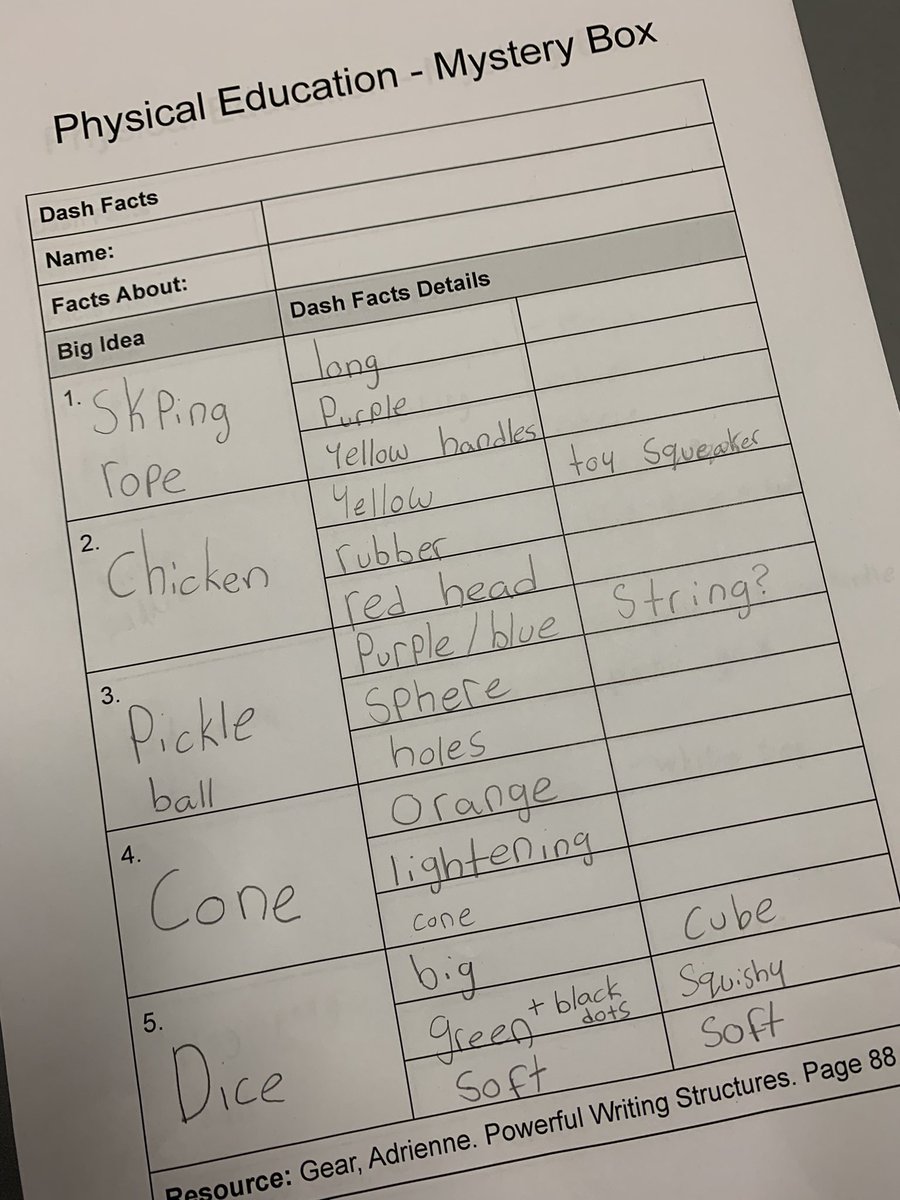 Physical Education - Mystery Box
Dash Facts
Name:
Facts About:
Big Idea
Dash Facts Details
1. Skping
rope
long
Purple
Yellow handles
2. Chicken
Yellow
toy Squeaker
rubber
red head
3. Pickle
ball
Purple/blue
String?
Sphere
holes
4. Cone
Orange
lightening
cone
5. Dice
big
Cube
green + black
dots
Squishy
Soft
Soft
Resource: Gear, Adrienne. Powerful Writing Structures. Page 88